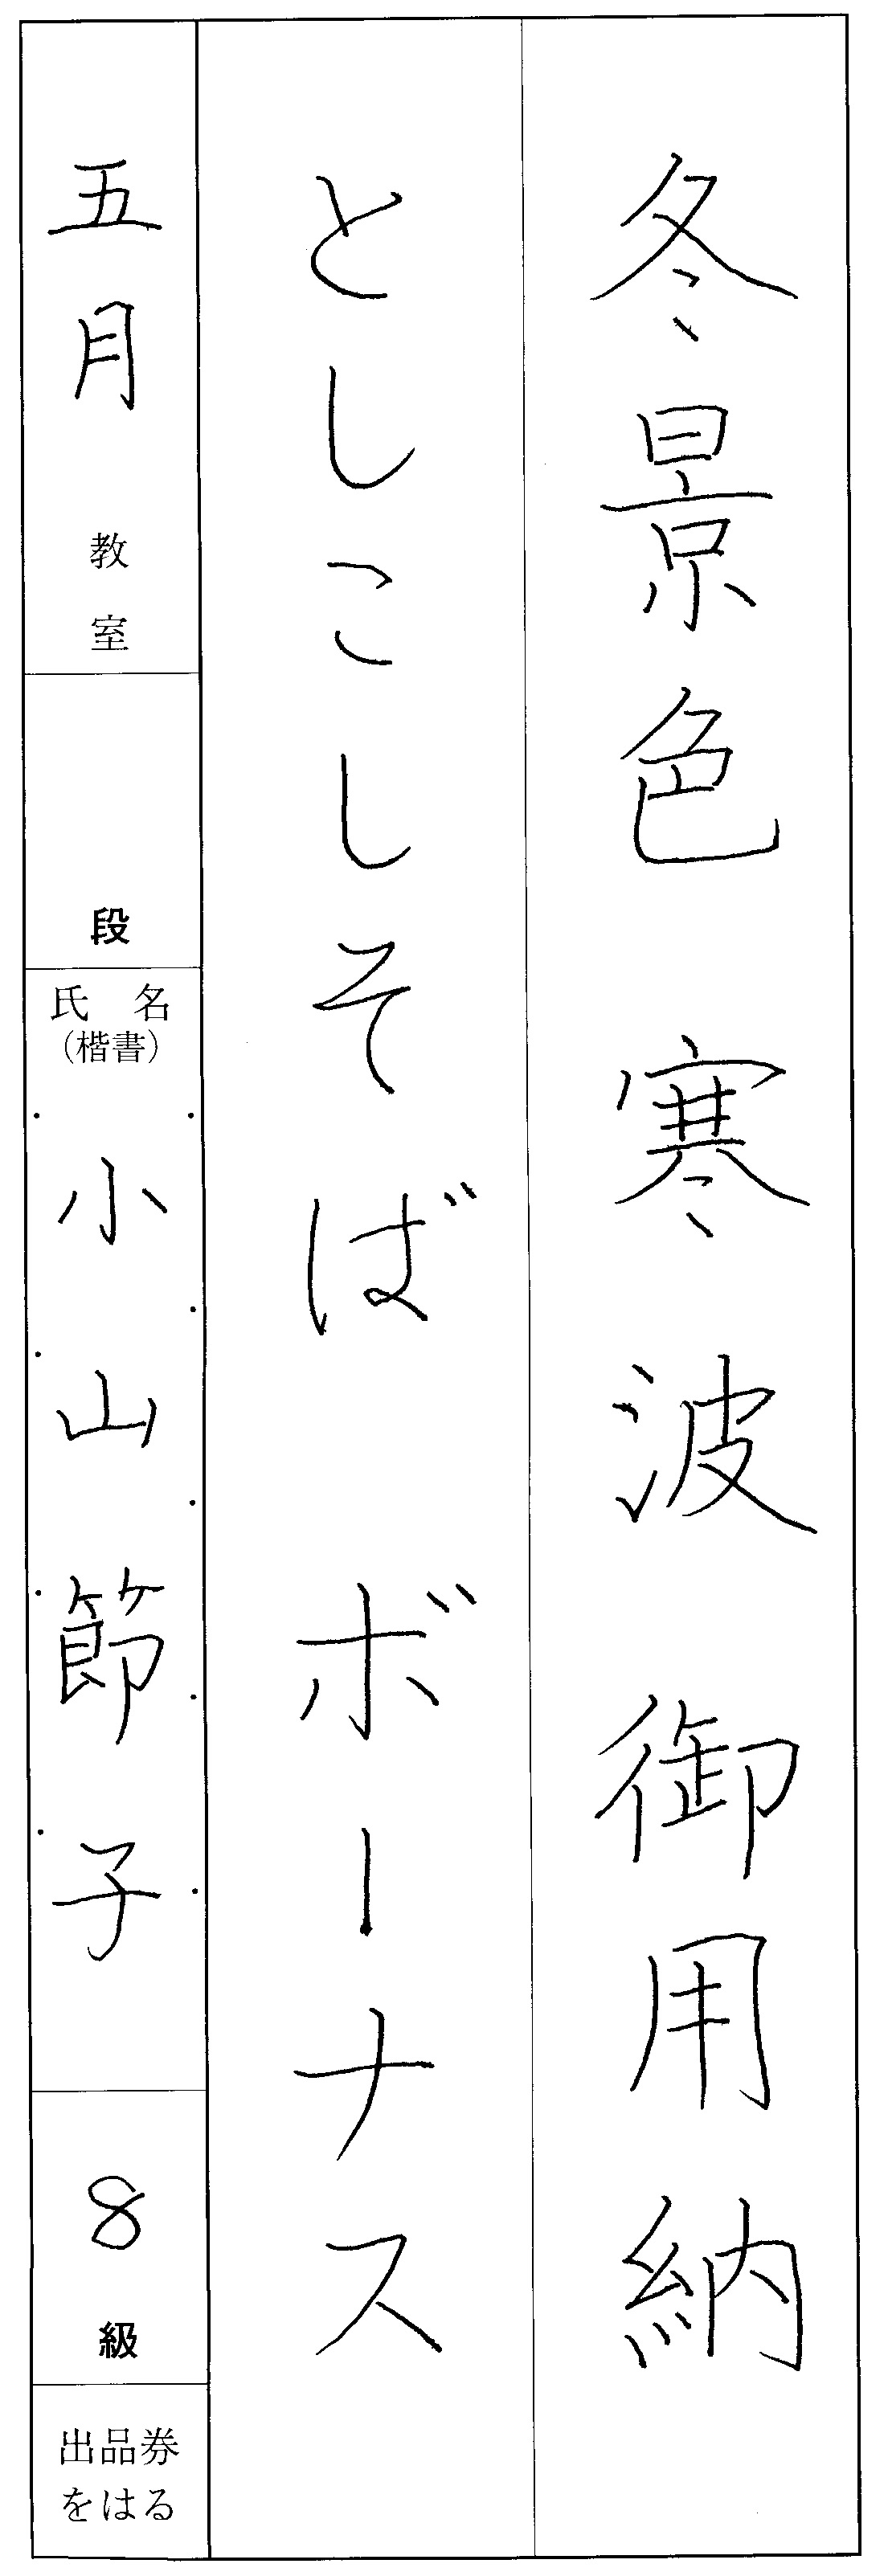 冬景色 寒波 御用納
としこしそば ボーナス
五月 教室
段
氏 名
(楷書)
小山節子
8 級
出品券
をはる